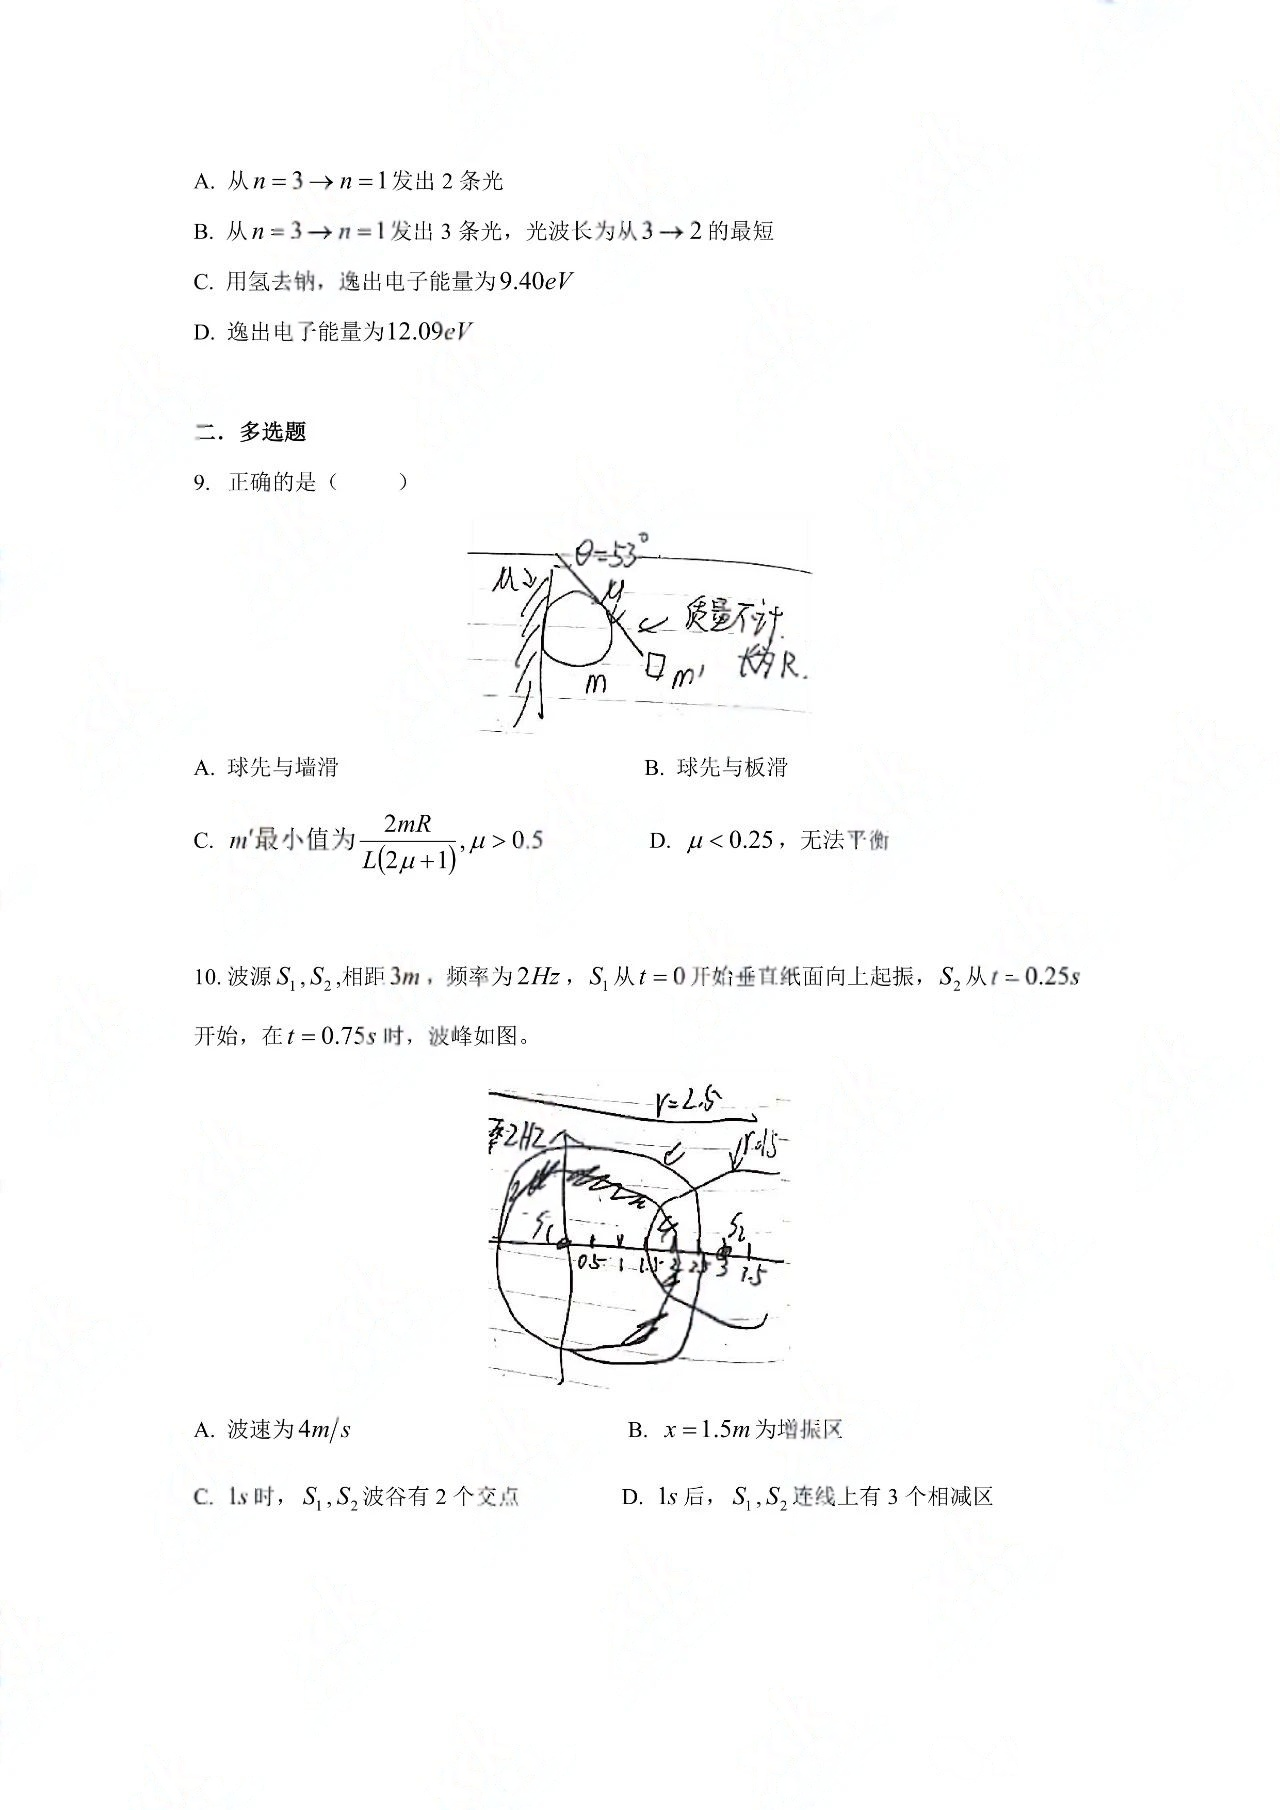 A. 从n=3→n=1发出 2 条光
B. 从n=3→n=1发出 3 条光，光波长为从3→2的最短
C. 用氢去钠，逸出电子能量为9.40eV
D. 逸出电子能量为12.09eV
二．多选题
9. 正确的是（ ）
θ=53°
μ
μ
质量不计
长为R.
m
m'
A. 球先与墙滑
B. 球先与板滑
C. m'最小值为 2mR/L(2μ+1), μ>0.5
D. μ<0.25，无法平衡
10. 波源S₁,S₂,相距3m，频率为2Hz，S₁从t=0开始垂直纸面向上起振，S₂从t=0.25s
开始，在t=0.75s时，波峰如图。
r=2.5
率2HZ
S₁
S₂
0.5 1 1.5 2 2.5 3 3.5
A. 波速为4m/s
B. x=1.5m为增振区
C. 1s时，S₁,S₂波谷有 2 个交点
D. 1s后，S₁,S₂连线上有 3 个相减区